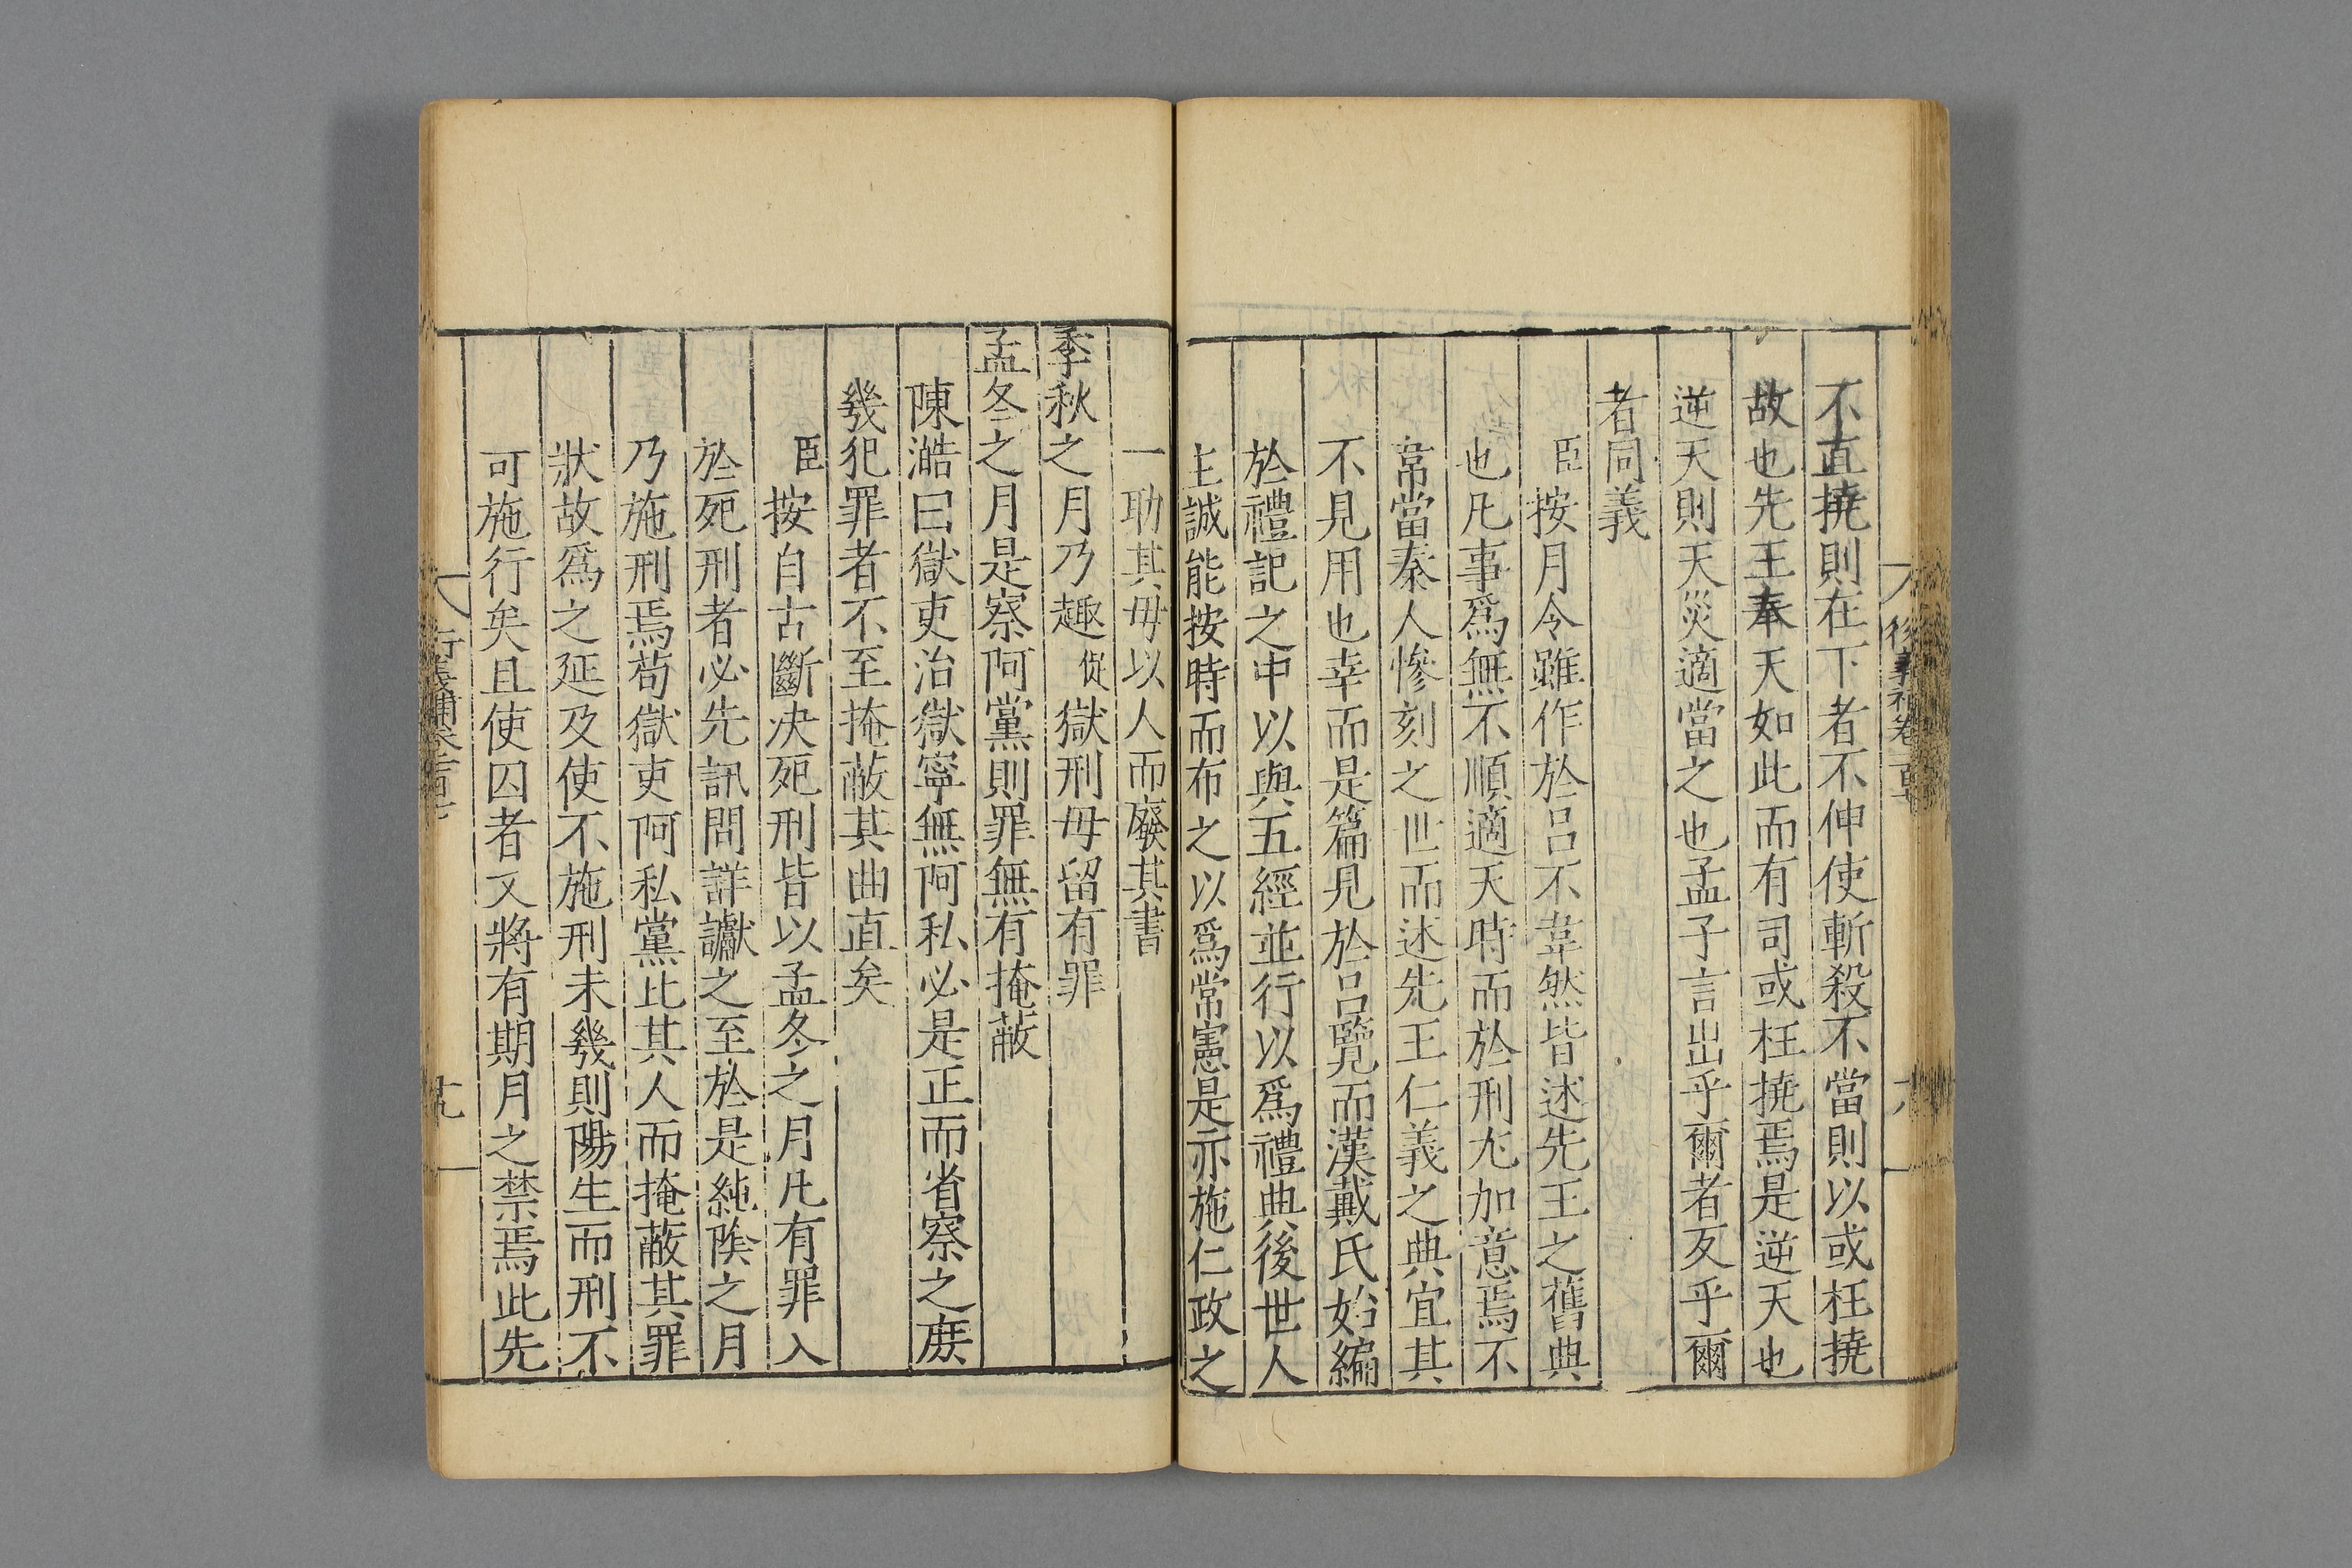 不直撓則在下者不伸使斬殺不當則以或枉撓
故也先王奉天如此而有司或枉撓焉是逆天也
逆天則天災適當之也孟子言出乎爾者反乎爾
者同義
臣按月令雖作於呂不韋然皆述先王之舊典
也凡事爲無不順適天時而於刑尤加意焉不
韋當秦人慘刻之世而述先王仁義之典宜其
不見用也幸而是篇見於呂覽而漢戴氏始編
於禮記之中以與五經並行以爲禮典後世人
主誠能按時而布之以爲常憲是亦施仁政之
一助其毋以人而廢其書
季秋之月乃趣促獄刑毋留有罪
孟冬之月是察阿黨則罪無有掩蔽
陳澔曰獄吏治獄寧無阿私必是正而省察之庶
幾犯罪者不至掩蔽其曲直矣
臣按自古斷决死刑皆以孟冬之月凡有罪入
於死刑者必先訊問詳讞之至於是純陰之月
乃施刑焉苟獄吏阿私黨比其人而掩蔽其罪
狀故爲之延及使不施刑未幾則陽生而刑不
可施行矣且使囚者又將有期月之禁焉此先